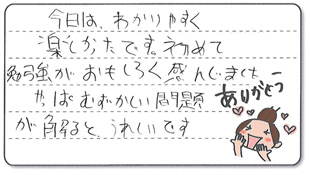 今日は、わかりやすく
楽しかたです。初めて
勉強がおもしろく感んじました
やっぱむずかしい問題
が解ると、うれしいです
ありがとう